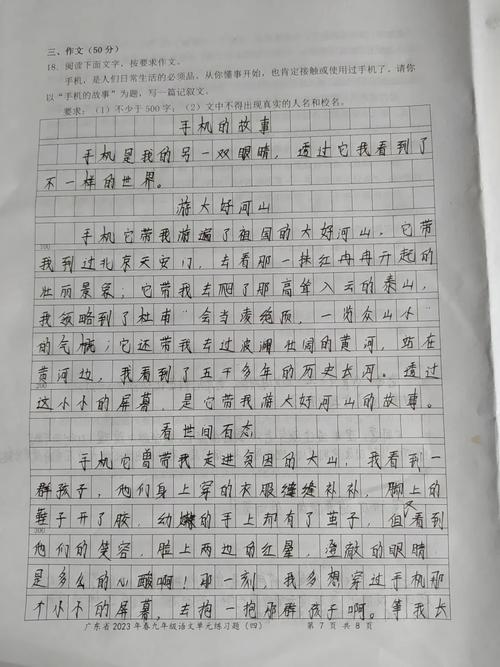 三、作文(50分)
18. 阅读下面文字，按要求作文。
手机，是人们日常生活的必须品。从你懂事开始，也肯定接触或使用过手机了。请你
以“手机的故事”为题，写一篇记叙文。
要求：（1）不少于500字；（2）文中不得出现真实的人名和校名。
手机的故事
手机是我的另一双眼睛，透过它我看到了
不一样的世界。
游大好河山
手机它带我游遍了祖国的大好河山，它带
100
我到过北京天安门，去看那一抹红冉冉升起的
壮丽景象；它带我去爬了那高耸入云的泰山，
我领略到了杜甫“会当凌绝顶，一览众山小”
的气概；它还带我去过波澜壮阔的黄河，站在
黄河边，我看到了五千多年的历史长河。透过
200
这小小的屏幕，是它带我游大好河山的故事。
看世间百态
手机它曾带我走进贫困的大山，我看到一
群孩子，他们身上穿的衣服缝缝补补，脚上的
鞋子开了胶，幼嫩的手上却有了茧子，但看到
300
他们的笑容，脸上两边的红晕，澄澈的眼睛
是多么的心酸啊！那一刻，我多想穿过手机那
个小小的屏幕，去抱一抱那群孩子啊。等我长
广东省2023年春九年级语文单元练习题（四） 第7页共8页